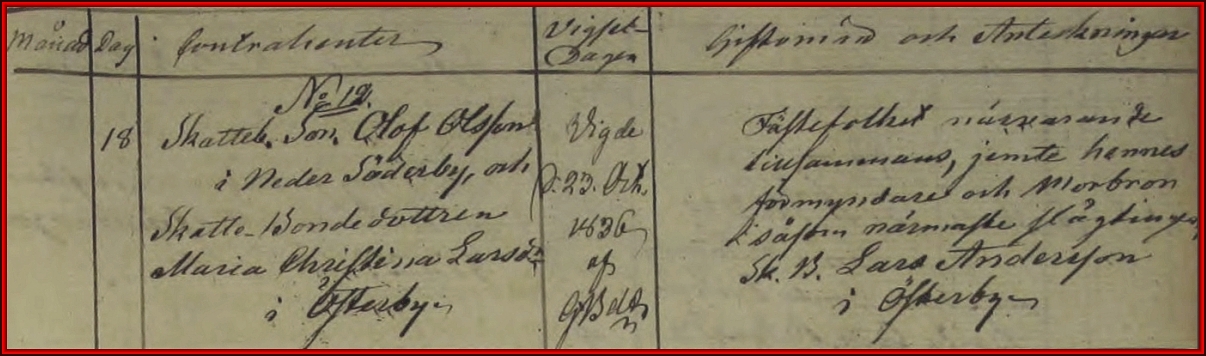 Månad Dag Contrahenter Vigsel-Dagen Giftomän och Anteckningar
No 12.
18 Skatteb. Son. Olof Olsson
i Neder Söderby, och
Skatte-Bondedottren
Maria Christina Larsdr
i Österby
Vigde
d. 23. Oct.
1836
af
Fästefolket närvarande
tillsammans, jemte hennes
förmyndare och Morbron
såsom närmaste slägtinge,
Sk. B. Lars Andersson
i Österby